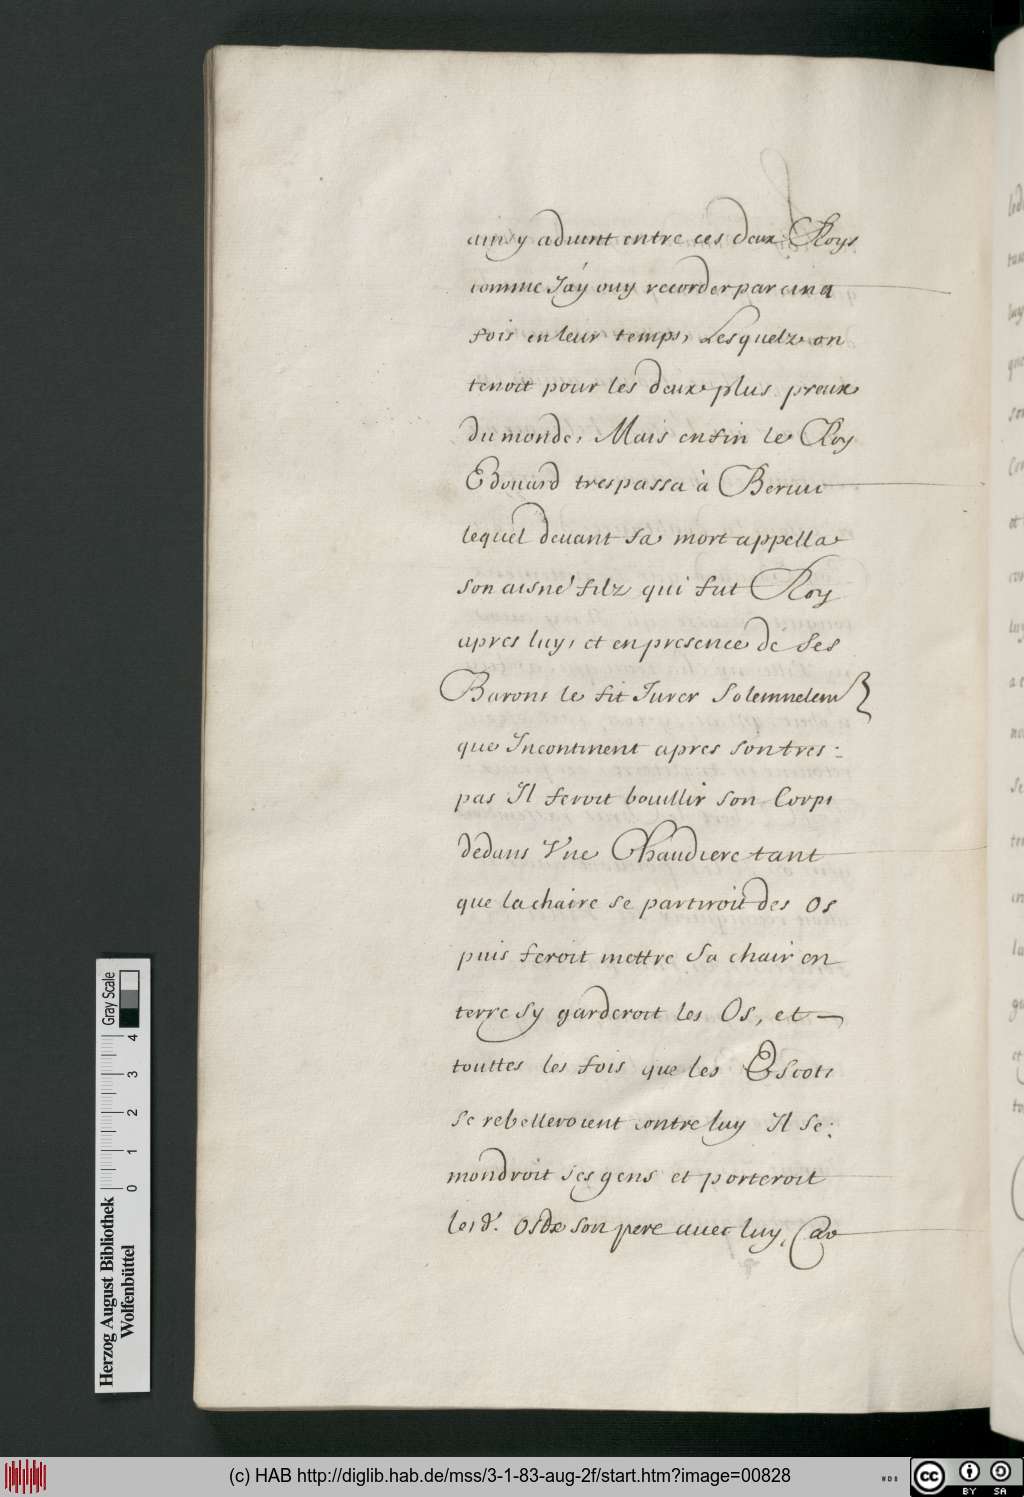 ainsy aduint entre ces deux Roys
comme J'ay ouy recorder par cinq
fois en leur temps, Lesquelz on
tenoit pour les deux plus preux
du monde, Mais enfin le Roy
Edouard trespassa à Beruic
lequel deuant sa mort appella
son aisné filz qui fut Roy
apres luy, et en presence de ses
Barons le fit Jurer Solemnelem
que Jncontinent apres son tres-
pas Jl feroit bouillir son Corps
dedans Vne Chaudiere tant
que la chaire se partiroit des Os
puis feroit mettre Sa chair en
terre sy garderoit les Os, et
touttes les fois que les Escots
se rebelleroient contre luy Jl se-
mondroit ses gens et porteroit
les d. os de son pere auec luy, Car
Herzog August Bibliothek
Wolfenbüttel
0 1 2 3 4
Gray Scale
(c) HAB http://diglib.hab.de/mss/3-1-83-aug-2f/start.htm?image=00828
cc BY SA